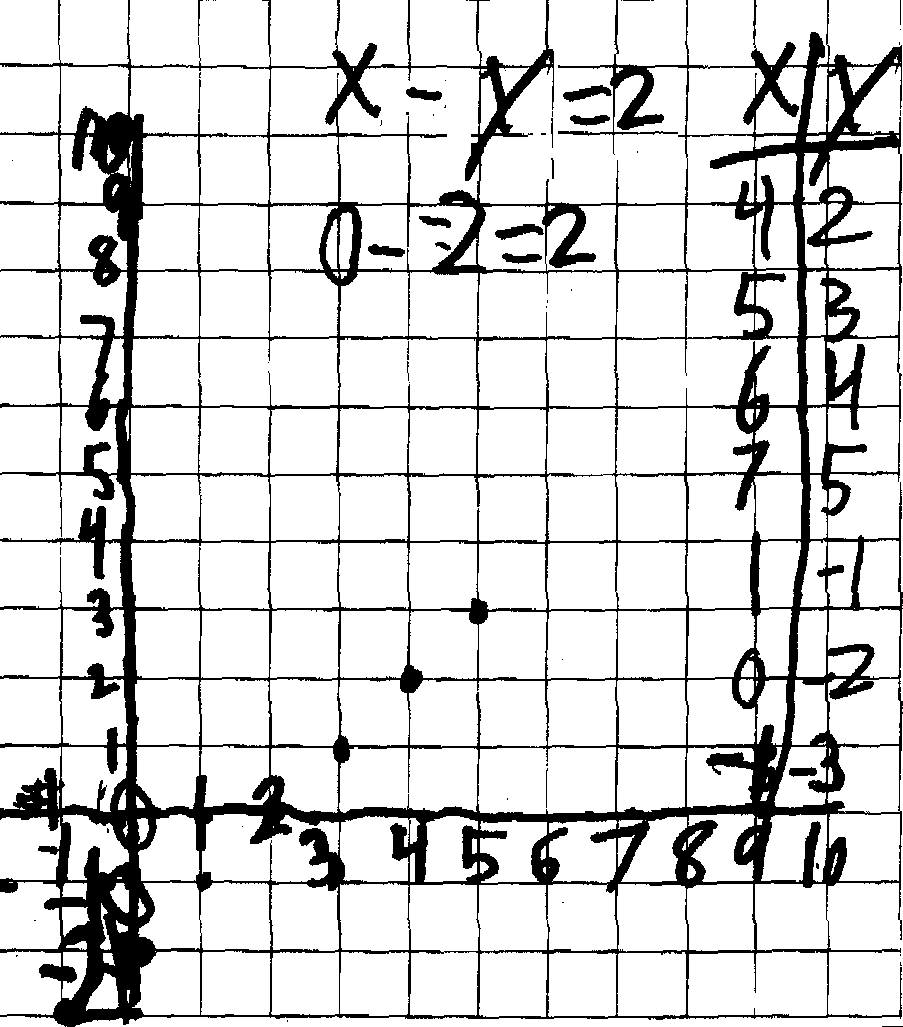 x - y = 2
0 - -2 = 2
x y
4 2
5 3
6 4
7 5
1 -1
0 -2
-3
10
9
8
7
6
5
4
3
2
1
-1 0 1 2 3 4 5 6 7 8 9 10